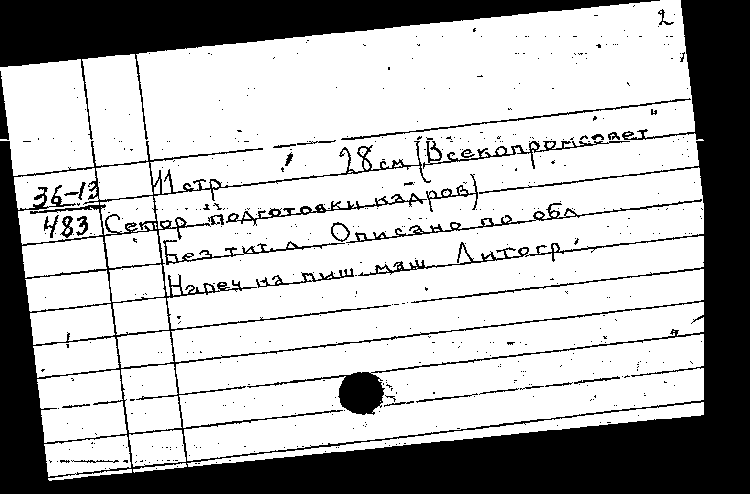 2
36-13
483
11 стр. 28 см (Всекопромсовет
Сектор подготовки кадров)
Без тит. л Описано по обл
Напеч на пиш. маш. Литогр.